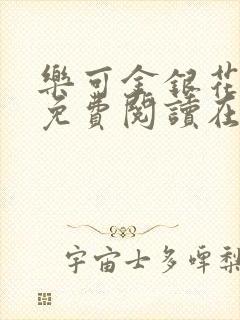 樂可金銀花
免費閱讀在
宇宙士多啤梨